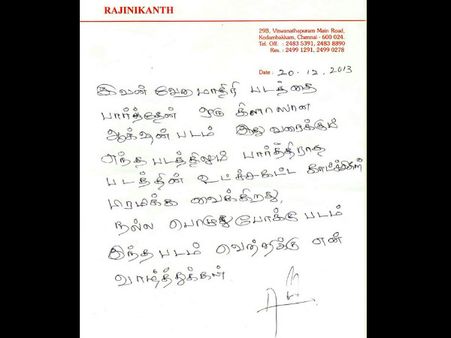 RAJINIKANTH
29B, Viswanathapuram Main Road,
Kodambakkam, Chennai - 600 024.
Tel: Off : 2483 5391, 2483 8890
Res. : 2499 1291, 2499 0278
Date : 20.12.2013
இவன் வேற மாதிரி படத்தை
பார்த்தேன் ஒரு கிளாஸான
ஆக்‌ஷன் படம் இது வரைக்கும்
எந்த படத்திலும் பார்த்திராத
படத்தின் உச்சகட்ட காட்சிகள்
பிரமிக்க வைக்கிறது,
நல்ல பொழுதுபோக்கு படம்
இந்த படம் வெற்றிக்கு என்
வாழ்த்துக்கள்